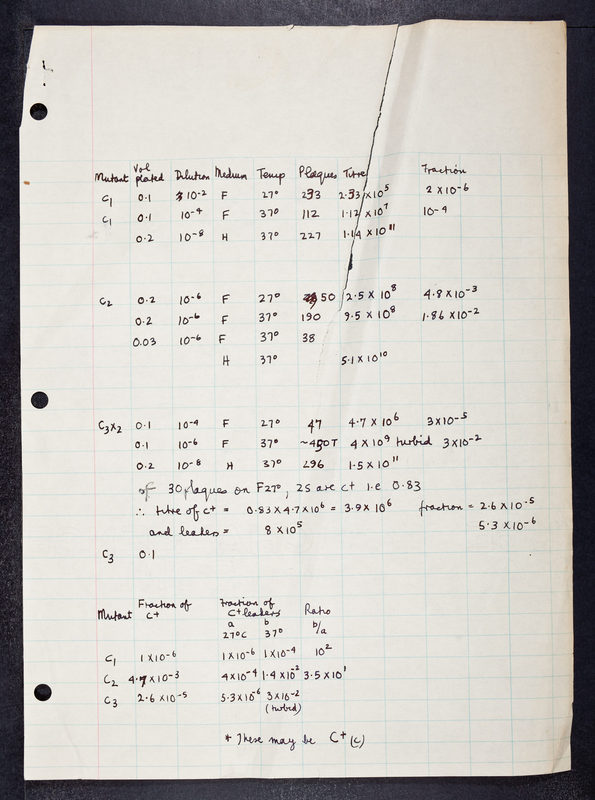 Mutant Vol plated Dilution Medium Temp Plaques Titre Fraction
C1 0.1 10-2 F 27° 233 2.33 x 10^5 2 x 10-6
C1 0.1 10-4 F 37° 112 1.12 x 10^7 10-4
0.2 10-8 H 37° 227 1.14 x 10^11
C2 0.2 10-6 F 27° 50 2.5 x 10^8 4.8 x 10-3
0.2 10-6 F 37° 190 9.5 x 10^8 1.86 x 10-2
0.03 10-6 F 37° 38
H 37° 5.1 x 10^10
C3x2 0.1 10-4 F 27° 47 4.7 x 10^6 3x10-5
0.1 10-6 F 37° ~450T 4 x 10^9 turbid 3x10-2
0.2 10-8 H 37° 296 1.5 x 10^11
of 30 plaques on F27°, 25 are c+ i.e 0.83
∴ titre of c+ = 0.83 x 4.7 x 10^6 = 3.9 x 10^6 fraction = 2.6 x 10-5
and leaders = 8 x 10^5 5.3 x 10-6
C3 0.1
Mutant Fraction of C+ Fraction of C+ leaders Ratio
a b b/a
27°C 37°
C1 1 x 10-6 1x10-6 1x10-4 10^2
C2 4.7 x 10-3 4x10-4 1.4 x 10-2 3.5 x 10^1
C3 2.6 x 10-5 5.3 x 10-6 3x10-2
(turbid)
* These may be C+ (c)